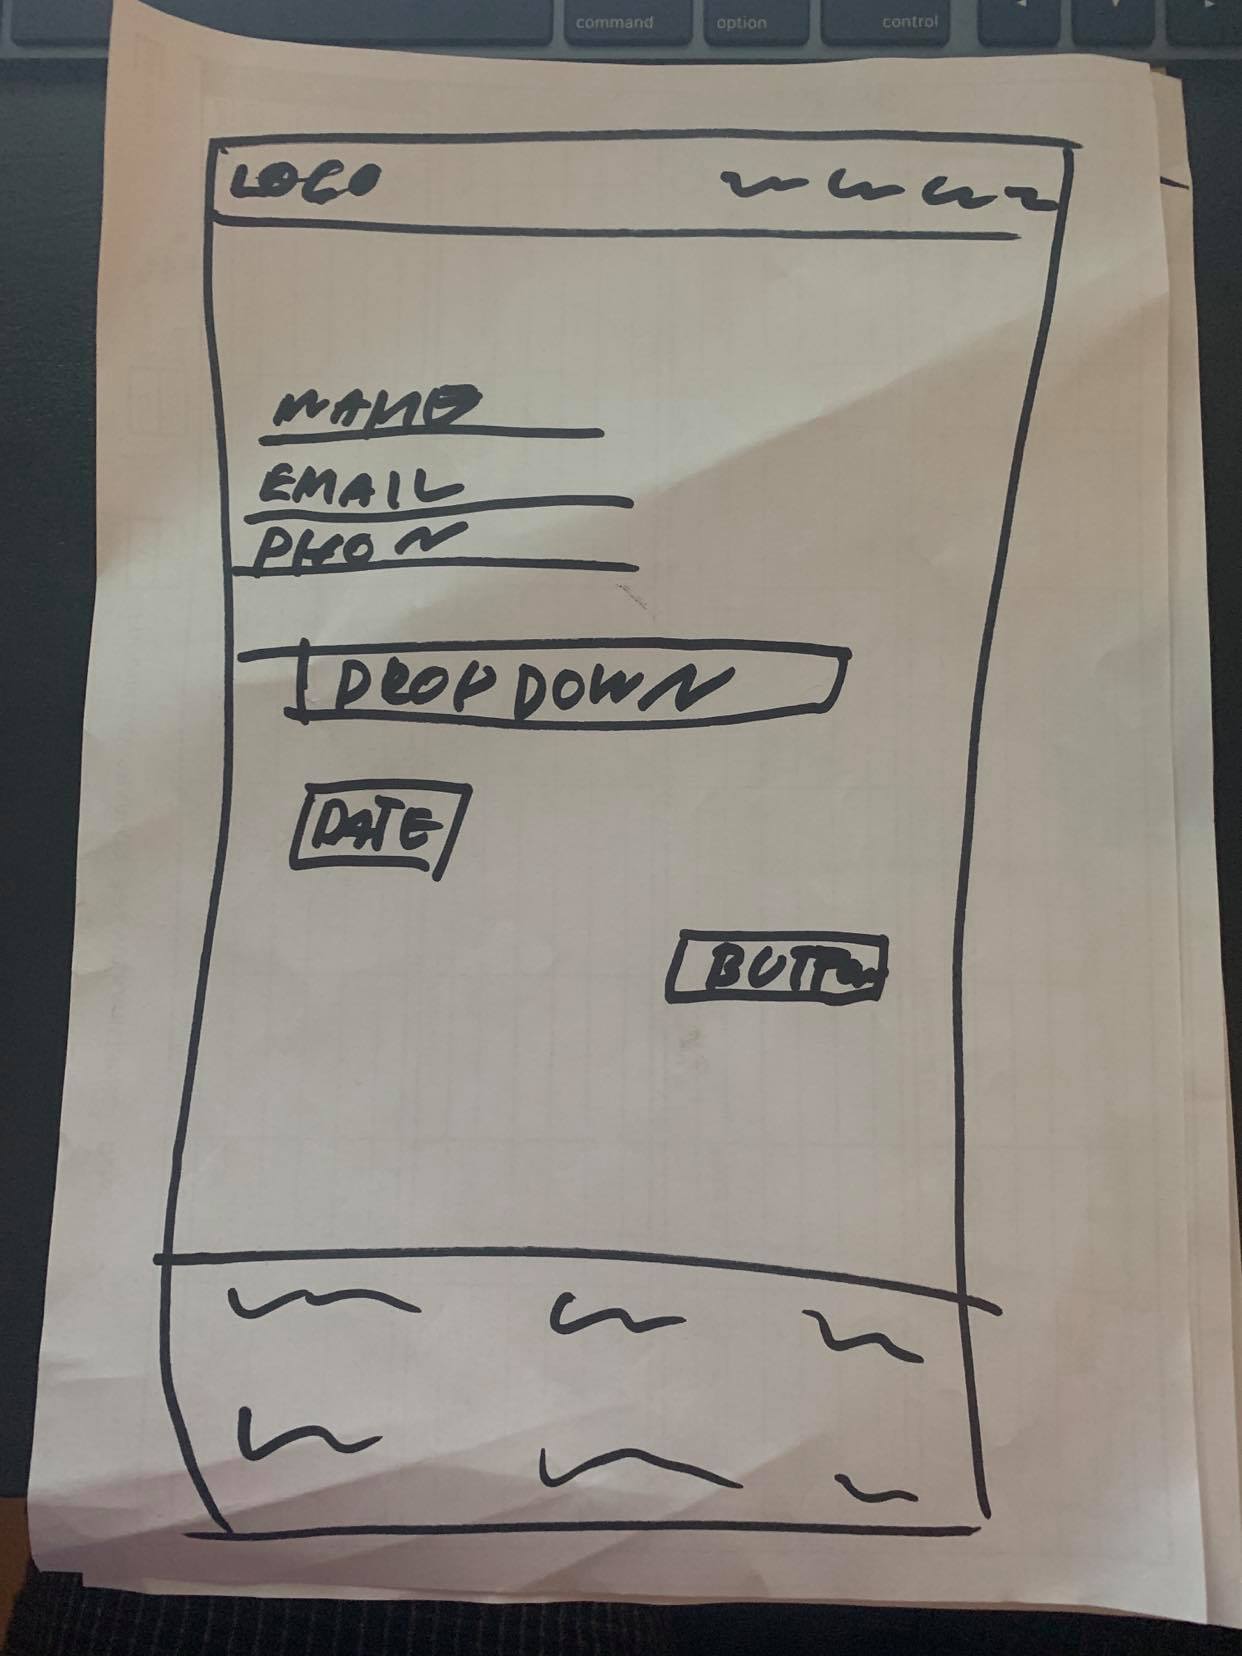 command option control
LOGO
NAME
EMAIL
PHON
DROPDOWN
DATE
BUTTON